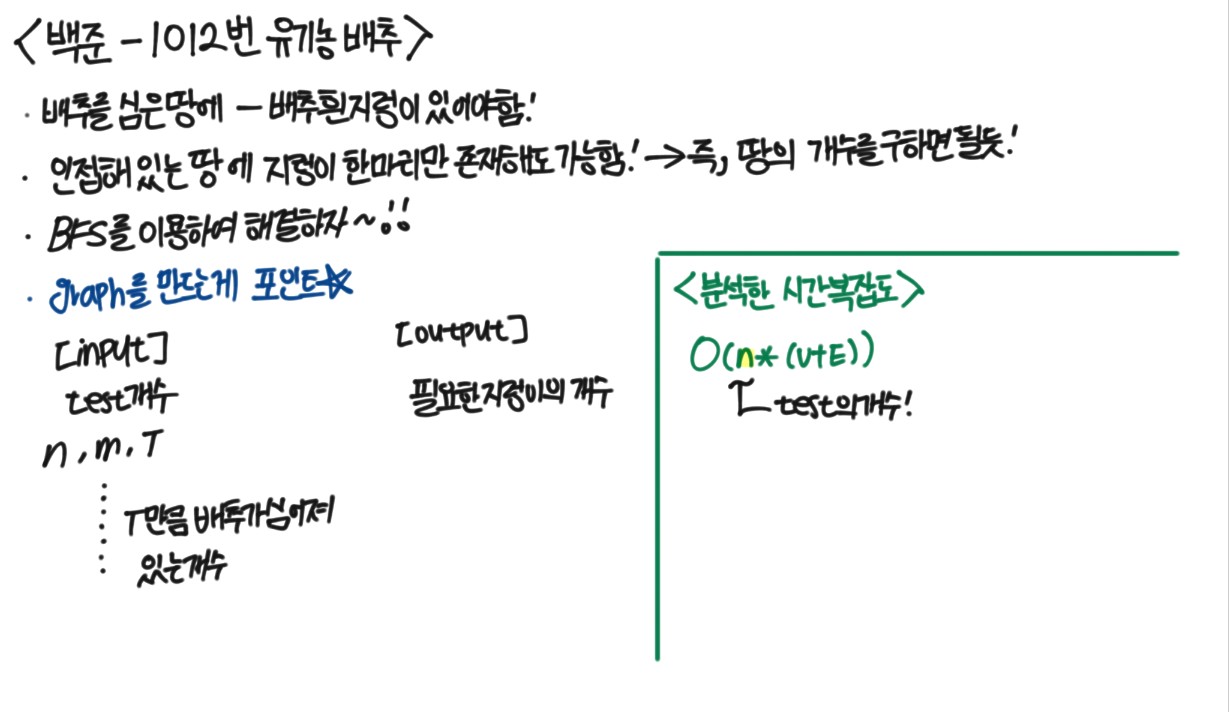 <백준 - 1012번 유기농 배추>
· 배추를 심은 땅에 - 배추흰지렁이 있어야함!
· 인접해 있는 땅에 지렁이 한마리만 존재해도 가능함! → 즉, 땅의 개수를 구하면 될듯!
· BFS를 이용하여 해결하자~!!
· graph를 만드는게 포인트☆
[input]
test개수
n, m, T
T만큼 배추가 심어져
있는개수
[output]
필요한 지렁이의 개수
<분석한 시간복잡도>
O(n*(v+E))
test의개수!